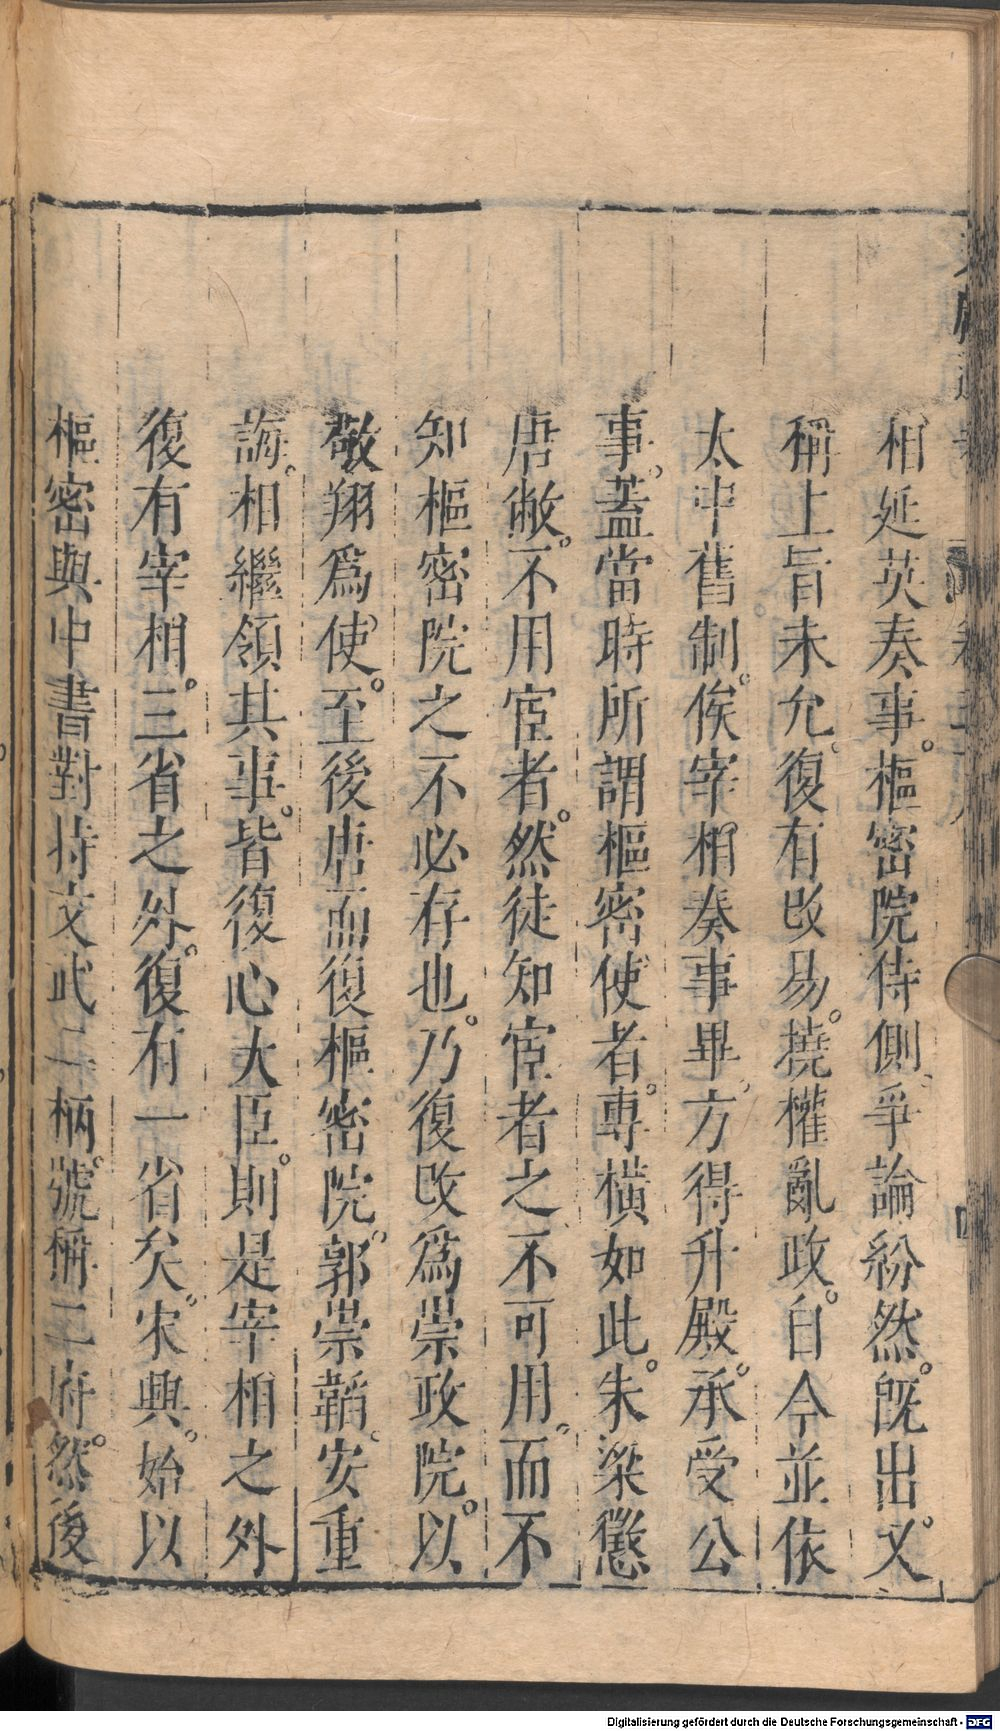 相延英奏事。樞密院侍側、爭論紛然。旣出又、
稱上旨未允、復有改易。撓權亂政。自今並依
太中舊制。俟宰相奏事畢、方得升殿。承受公
事。蓋當時所謂樞密使者。專橫如此。朱梁懲
唐敝。不用宦者。然徒知宦者之不可用。而不
知樞密院之不必存也。乃復改爲崇政院。以
敬翔爲使。至後唐而復樞密院。郭崇韜、安重
誨。相繼領其事。皆復心大臣。則是宰相之外
復有宰相。三省之外。復有一省矣。宋興。始以
樞密與中書對持文武二柄。號稱二府。然後
Digitalisierung gefördert durch die Deutsche Forschungsgemeinschaft - DFG